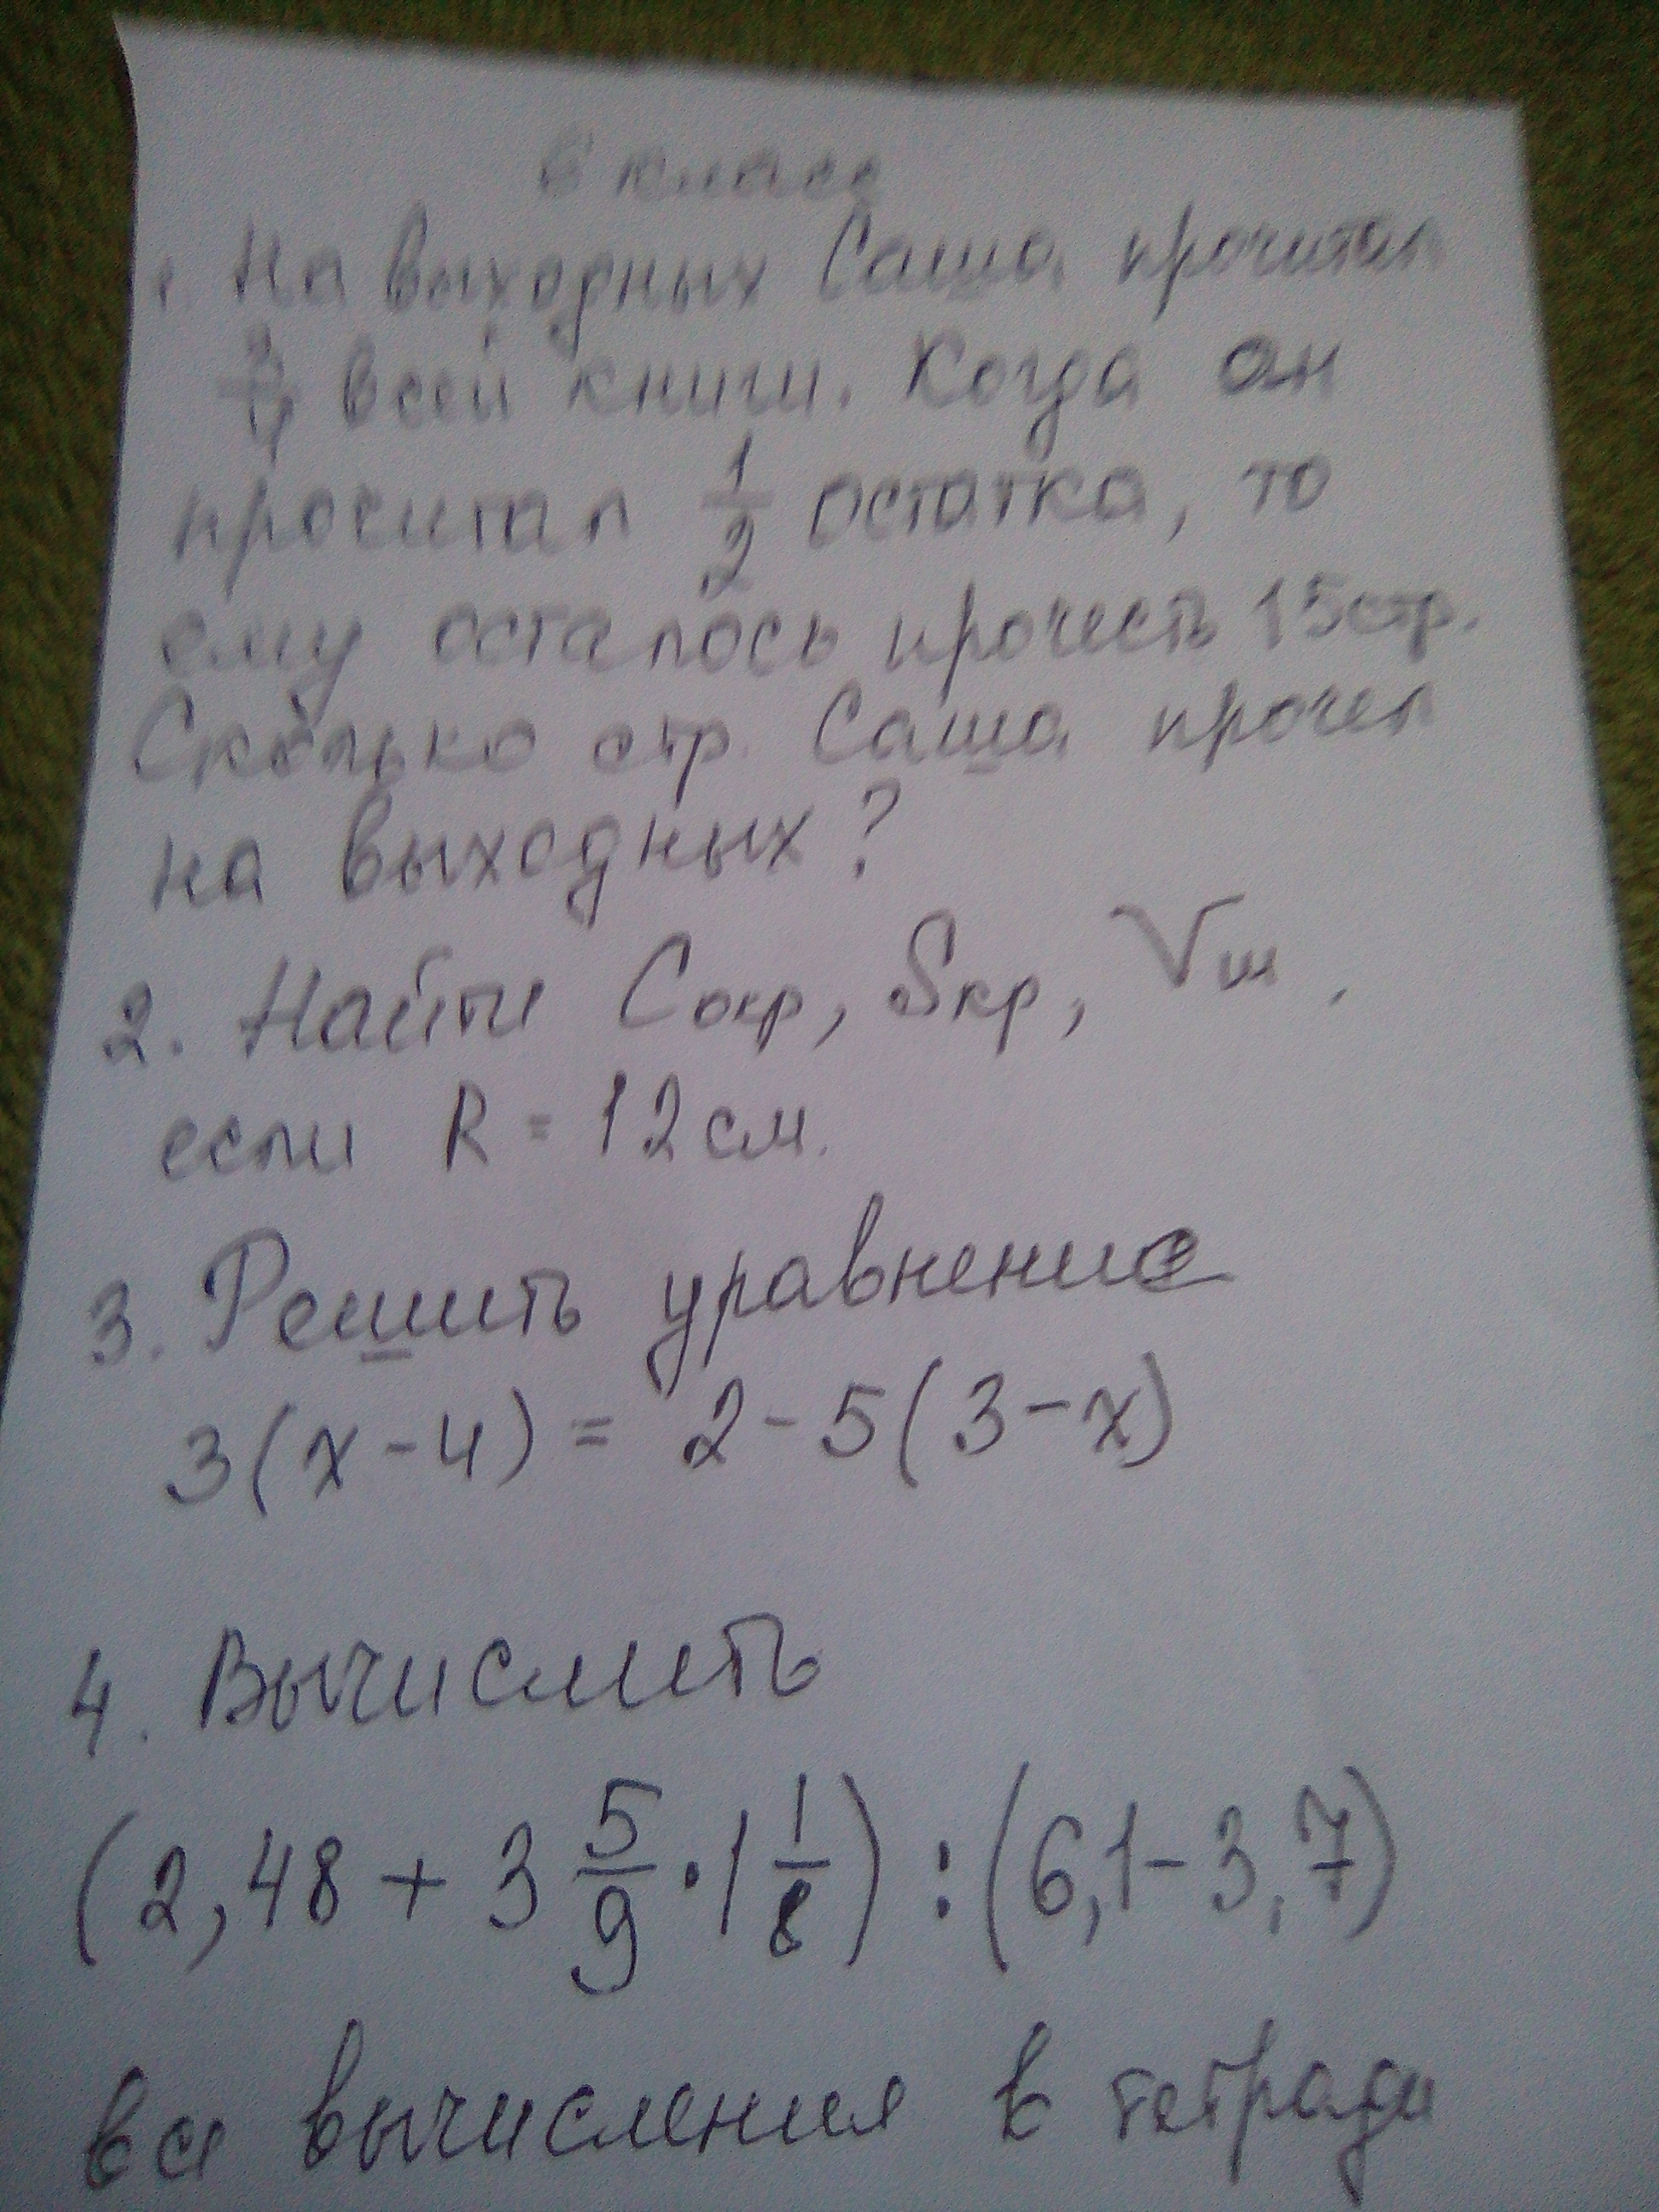 6 класс
1. На выходных Саша прочитал
3/4 всей книги. Когда он
прочитал 1/2 остатка, то
ему осталось прочесть 15 стр.
Сколько стр. Саша прочел
на выходных?
2. Найти Cокр, Sкр, Vш,
если R = 12 см.
3. Решить уравнение
3(x-4) = 2-5(3-x)
4. Вычислить
(2,48 + 3 5/9 · 1 1/8) : (6,1-3,7)
все вычисления в тетради